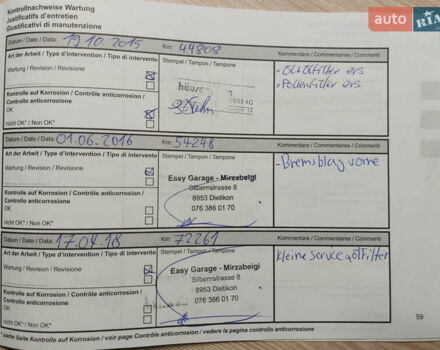 Kontrollnachweise Wartung
Justificatifs d'entretien
Giustificativi di manutenzione
auto RIA
Datum / Date / Data: 19.10.2015 Km: 44808 Kommentare / Commentaires / Commenti
Art der Arbeit / Type d'intervention / Tipo di intervento Stempel / Tampon / Tampone - Öl+Ölfilter ers
Wartung / Revision / Revisione - Pollenfilter ers
Kontrolle auf Korrosion / Contrôle anticorrosion /
Controllo anticorrosione
OK
nicht OK* / Non OK*
Datum / Date / Data: 01.06.2016 Km: 54248 Kommentare / Commentaires / Commenti
Art der Arbeit / Type d'intervention / Tipo di intervento Stempel / Tampon / Tampone - Bremsblag vorne
Wartung / Revision / Revisione
Easy Garage - Mirzabeigi
Silbernstrasse 8
8953 Dietikon
076 386 01 70
Kontrolle auf Korrosion / Contrôle anticorrosion /
Controllo anticorrosione
OK
nicht OK* / Non OK*
Datum / Date / Data: 17.04.18 Km: 72261 Kommentare / Commentaires / Commenti
Art der Arbeit / Type d'intervention / Tipo di intervento Stempel / Tampon / Tampone kleine
Wartung / Revision / Revisione
Easy Garage - Mirzabeigi
Silbernstrasse 8
8953 Dietikon
076 386 01 70
Kontrolle auf Korrosion / Contrôle anticorrosion /
Controllo anticorrosione
OK
nicht OK* / Non OK*
* siehe Seite Kontrolle auf Korrosion / voir page Contrôle anticorrosion / vedere la pagina controllo anticorrosione
59